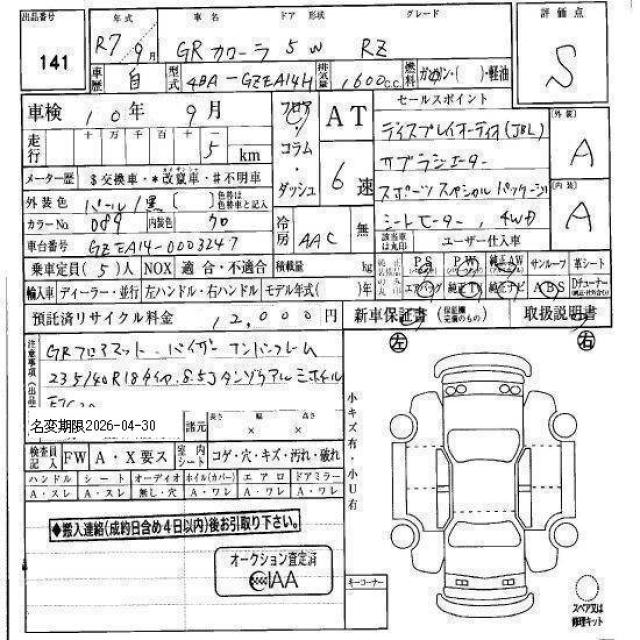 出品番号 年式 車名 ドア 形状 グレード 評価点
141 R7 9月 GRカローラ 5 W RZ S
車歴 自 型式 4BA-GZEA14H 排気量 1600cc 燃料 ガソリン・( )・軽油
車検 10年 9月 フロア・コラム・ダッシュ AT セールスポイント 外装 A
走行 十 万 千 百 十 一 5 km 6速 ディスプレイオーディオ(JBL)
メーター歴 $交換車・*改竄車・#不明車 サブラジエーター
外装色 パール/黒 [ ] 色替は色替車と記入 スポーツスペシャルパッケージ 内装 A
カラーNo. 089 内装色 クロ 冷房 AAC 無 シートヒーター, 4WD
車台番号 GZEA14-0003247 該当車は丸印 ユーザー仕入車
乗車定員(5)人 NOX 適合・不適合 積載量 kg PS PW 純正AW サンルーフ 革シート
輸入車 ディーラー・並行 左ハンドル・右ハンドル モデル年式( )年 エアバッグ 純正TV 純正ナビ ABS Dチューナー
預託済リサイクル料金 12,000円 新車保証書 (保証欄完備のもの) 取扱説明書
注意事項 GRフロアマット バイザー ナンバーフレーム 左 右
235/40R18タイヤ, 8.5J
名変期限2026-04-30 諸元 長さ 幅 高さ × ×
検査員記入 FW A・X要ス 室内シート コゲ・穴・キズ・汚れ・破れ 小キズ有・小U有
ハンドル シート オーディオ ホイル(カバー) エアロ ドアミラー
A・スレ A・スレ 無し・穴 A・ワレ A・ワレ A・ワレ
◆搬入連絡(成約日含め4日以内)後お引取り下さい。
オークション査定済
IAA
キーコーナー
スペア又は
修理キット